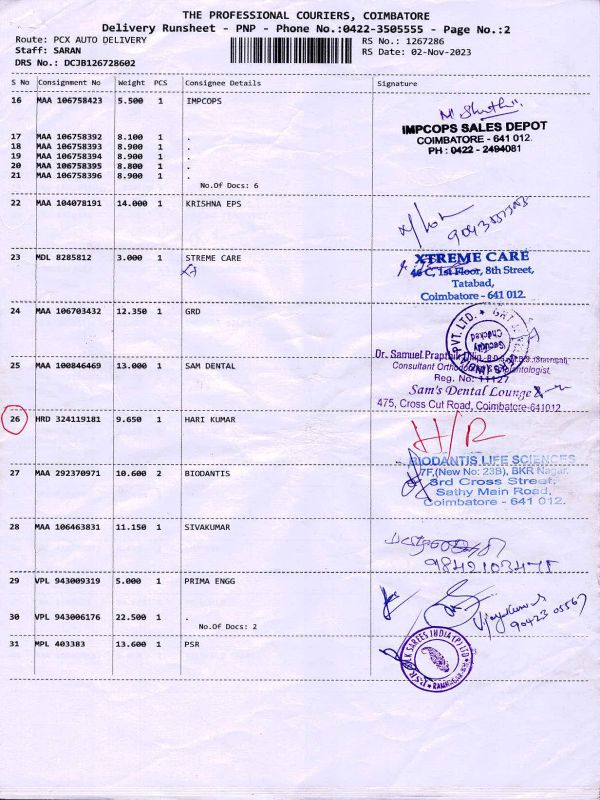 THE PROFESSIONAL COURIERS, COIMBATORE
Delivery Runsheet - PNP - Phone No.:0422-3505555 - Page No.:2
Route: PCX AUTO DELIVERY
RS No.: 1267286
Staff: SARAN
RS Date: 02-Nov-2023
DRS No.: DCJB126728602
S No Consignment No Weight PCS Consignee Details Signature
16 MAA 106758423 5.500 1 IMPCOPS
IMPCOPS SALES DEPOT
COIMBATORE - 641 012.
PH : 0422 - 2494081
17 MAA 106758392 8.100 1 .
18 MAA 106758393 8.900 1 .
19 MAA 106758394 8.900 1 .
20 MAA 106758395 8.800 1 .
21 MAA 106758396 8.900 1 .
No.Of Docs: 6
22 MAA 104078191 14.000 1 KRISHNA EPS
23 MDL 8285812 3.000 1 STREME CARE
XTREME CARE
46 C, 1st Floor, 8th Street,
Tatabad,
Coimbatore - 641 012.
24 MAA 106703432 12.350 1 GRD
PVT. LTD.
Security
Checked
25 MAA 100846469 13.000 1 SAM DENTAL
Dr. Samuel
Consultant
Reg. No: 11127
Sam's Dental Lounge
475, Cross Cut Road, Coimbatore-641012
26 HRD 324119181 9.650 1 HARI KUMAR
H/R
27 MAA 292370971 10.600 2 BIODANTIS
BIODANTIS LIFE SCIENCES
7F,(New No: 23B), BKR Nagar,
3rd Cross Street,
Sathy Main Road,
Coimbatore - 641 012.
28 MAA 106463831 11.150 1 SIVAKUMAR
29 VPL 943009319 5.000 1 PRIMA ENGG
30 VPL 943006176 22.500 1 .
No.Of Docs: 2
Vijayakumar
90423 05567
31 MPL 403383 13.600 1 PSR
PSR SILK SAREES INDIA (P) LTD